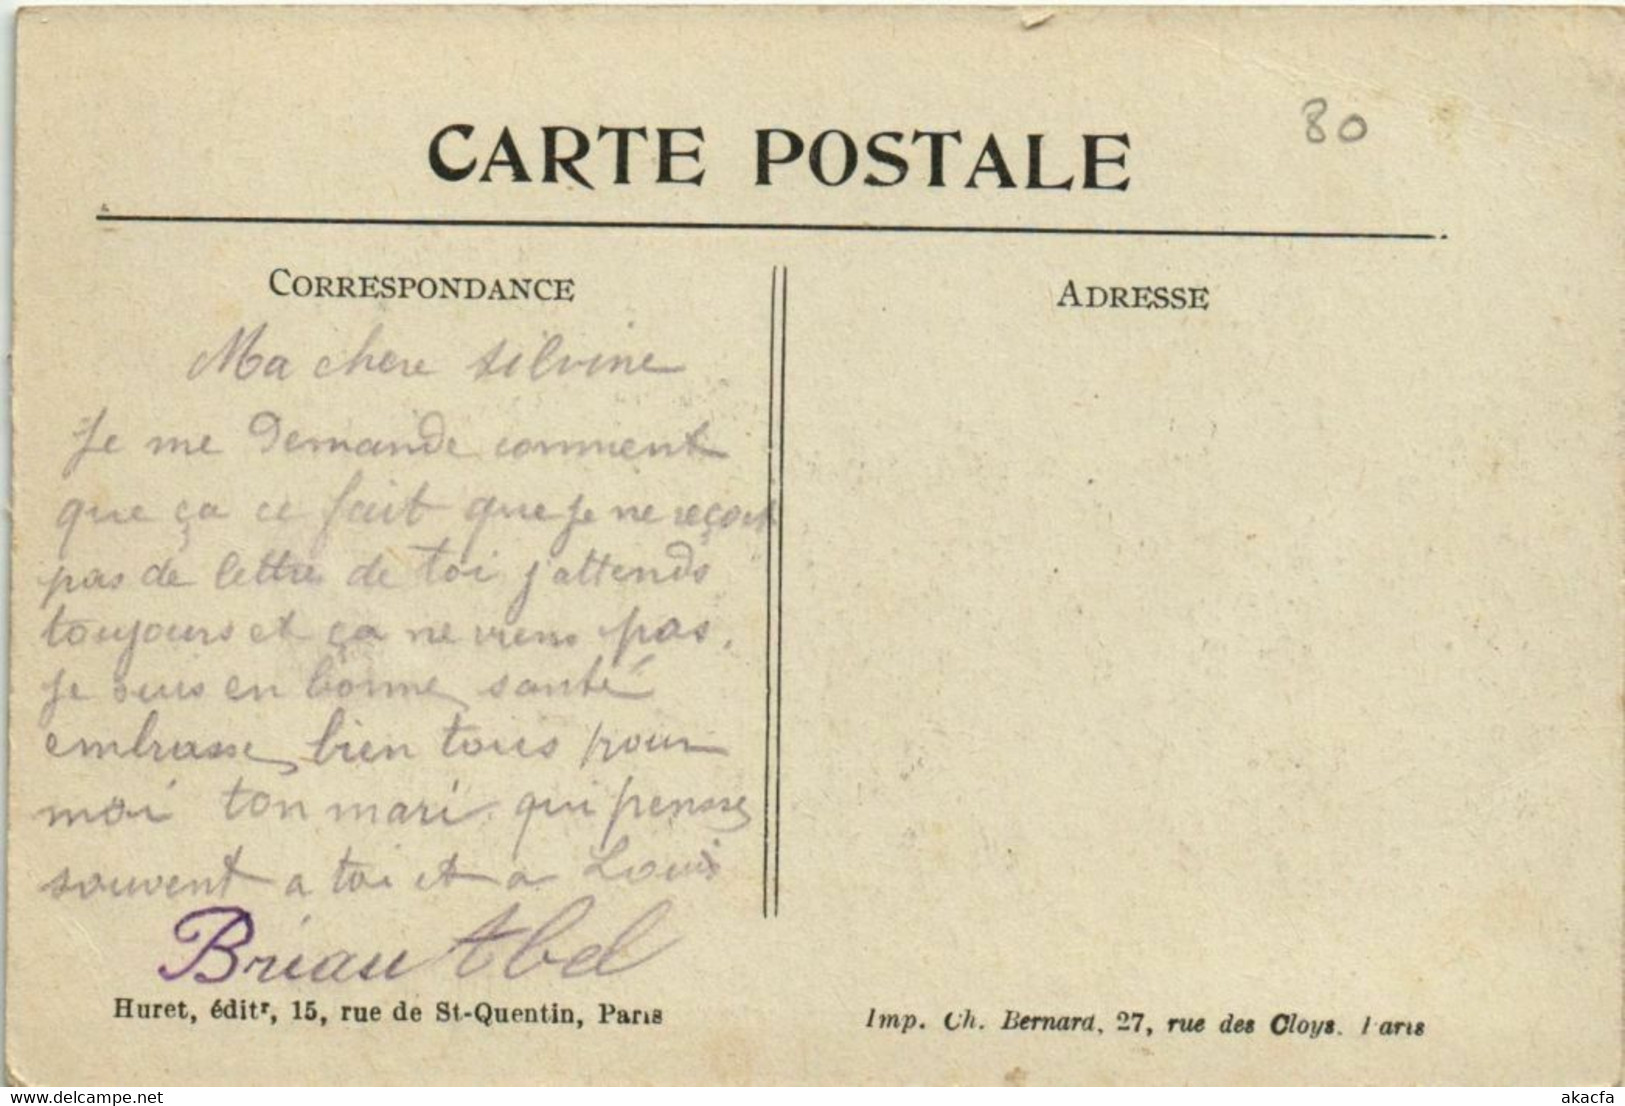 CARTE POSTALE
80
CORRESPONDANCE
Ma chere silvine
Je me Demande comment
que ça ce fait que je ne reçoit
pas de lettre de toi j'attends
toujours et ça ne viens pas.
Je suis en bonne santé
embrasse bien tous pour
moi ton mari qui pensse
souvent a toi et a Louis
Briau Abel
Huret, éditr, 15, rue de St-Quentin, Paris
ADRESSE
Imp. Ch. Bernard, 27, rue des Cloys. Paris
delcampe.net
akacfa